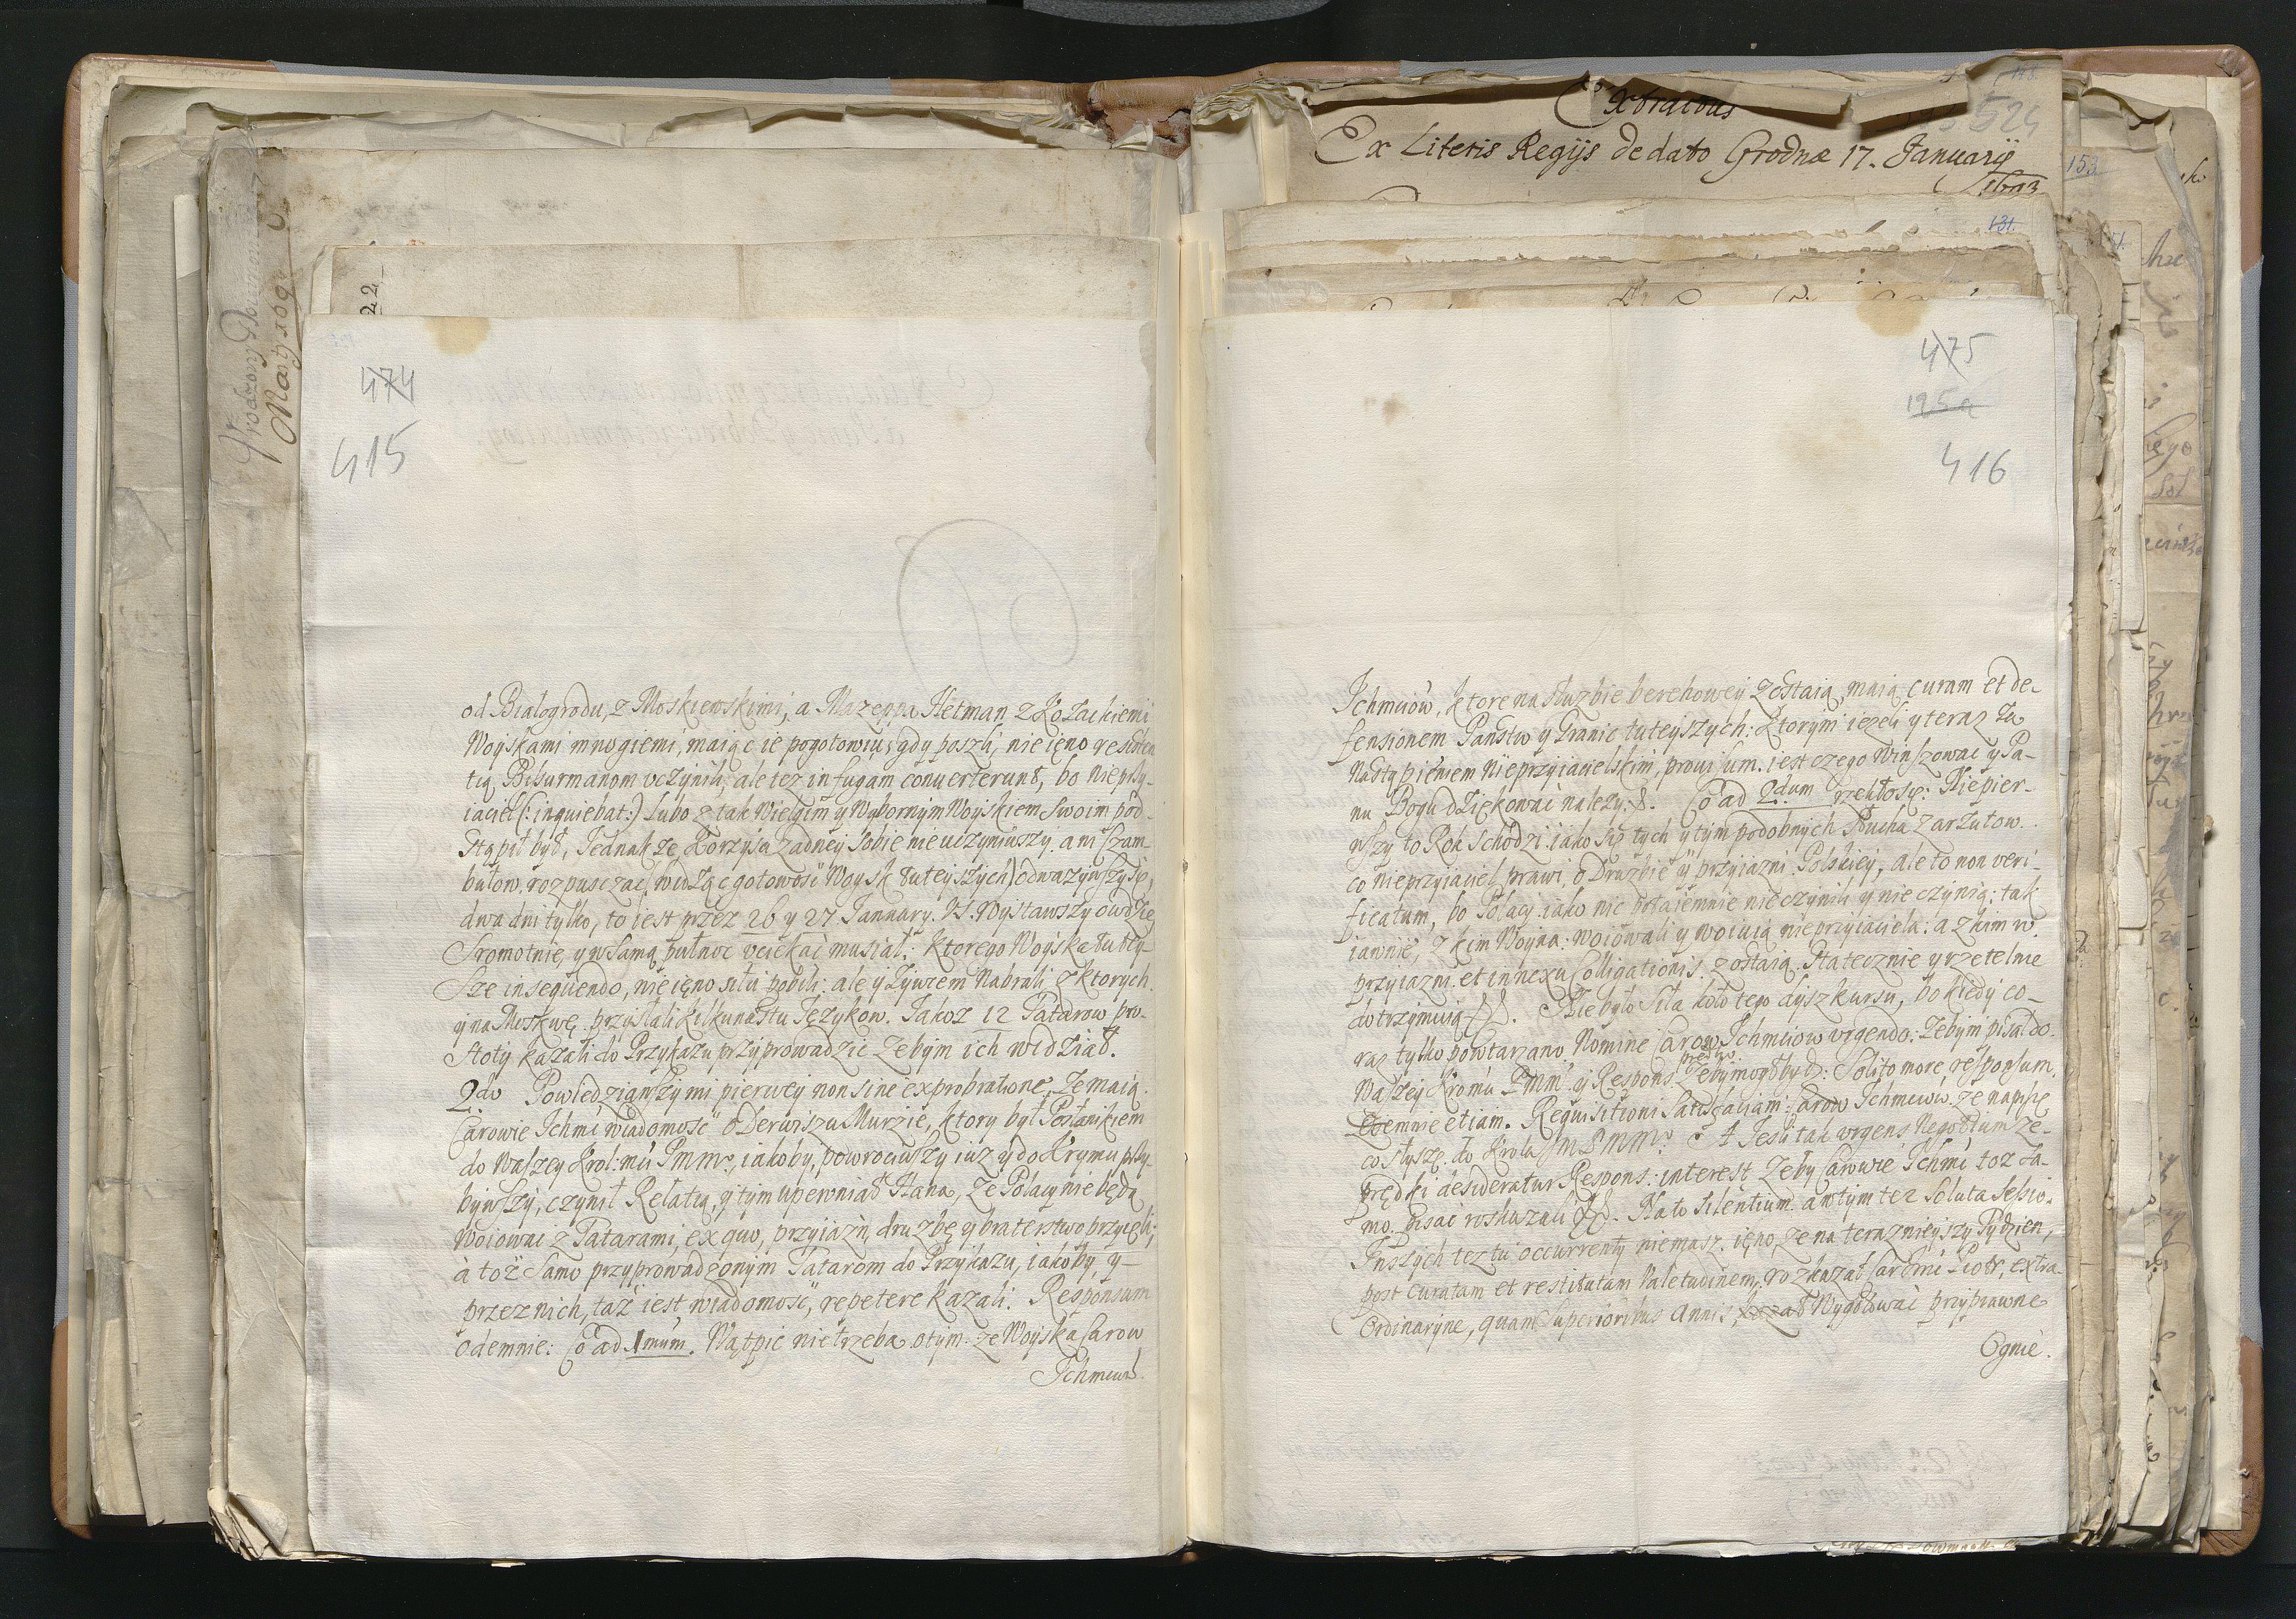 Extractus
Ex Literis Regijs de dato Grodnæ 17. Januarij
529
153.
131.
22
Urodzony
474
415
od Białogrodu, z Moskiewskimi, a Mazeppa Hetman z Kozackiemi
Woyskami mnogiemi, maiąc ie pogotowiu, gdy poszli, nie ięno resisten
tią Bisurmanom uczynili, ale tez in fugam converterunt, bo Nieprzy-
iaciel (: inquiebat:) Lubo z tak Wielgim y Wybornym Woyskiem swoim pod-
stąpił był, Jednakze Korzysci zadney sobie nie uczyniwszy, ani czam-
bułow rozpusczac, widząc gotowość Woysk tuteyszych) odwazywszy się,
dwa dni tylko, to iest przez 26 y 27 January. VS. Wystawszy owdzie,
Sromotnie, y w samą pułnoc uciekać musiał: ktorego Woyska tutey-
sze insequendo, nie ięno siłu pobili: ale y Zywcem Nabrali, z ktorych
y na Moskwę przysłali kilkunastu Językow. Jakoz 12 Tatarow pro-
stoty kazali do Przykazu przyprowadzic zebym ich widział.
2do Powiedziawszy mi pierwey non sine exprobratione, ze maią
Carowie Ichmć wiadomość o Derwiszu Murzie, ktory był Posłannikiem
do Waszey Krol: mći Pmmo, iakoby, powrociwszy iuz y do Krymu przy-
bywszy, czynił Relatią, y tym upewniał Hana, ze Polacy nie będą
Woiowac z Tatarami, ex quo, przyiazn, druzbę y braterstwo przyieli;
à toz samo przyprowadzonym Tatarom do Przykazu, iakoby y-
przez nich, taz iest wiadomość, repetere kazali. Responsum
odemnie: Co ad 1mum. Wątpic nie trzeba o tym ze Woyska Carow
Ichmciow
475
195a
416
Ichmciow, ktore na słuzbie berehowey zostaią, maią curam et de-
fensionem Panstw y Granic tuteyszych: Ktorym iezeli y teraz za
Nastąpieniem Nieprzyiacielskim, provisum. iest czego Winszowac y Pa-
nu Bogu dziękować nalezy. &. Co ad 2dum rzekło się: Nie pier-
wszy to Rok schodzi iako się tych y tym podobnych słucha zarzutow.
co nieprzyiaciel prawi, o Druzbie y przyiazni Polskiey, ale to non veri-
ficatum, bo Polacy iako nic potaiemnie nie czynili y nie czynią: tak
iawnie, z kim Woyna: woiowali y woiuią nieprzyiaciela: a z kim w
przyiazni et in nexu Colligationis. zostaią. Statecznie y rzetelnie
dotrzymuią &&. Nie było siła koło tego dyszkursu, bo kiedy co-
raz tylko powtarzano Nomine Carow Ichmciow urgendo: Zebym pisał do
Waszey Kromći PMMo y Respons prędko zeby mogł byd: Solito more responsum,
Odemnie etiam. Requisitioni satisfaliam: Carow Ichmciow, ze napiszę
co słyszę. do Krola JM PMMo. A Jesli tak urgens Negotium ze-
prędki desideratur Respons: interest Zeby Carowie Ichmć toz sa-
mo. Pisać roskazali &&. Na to silentium. a w tym tez soluta sessio.
Inszych tez tu occurrenty niemasz. ięno, ze na teraznieyszy Tydzien,
post curatam et restitutam Valetudinem, rozkazał Car Jmć Piotr, extra-
Ordinaryne, quam superioribus annis, Wygotować przyprawne
Ognie.